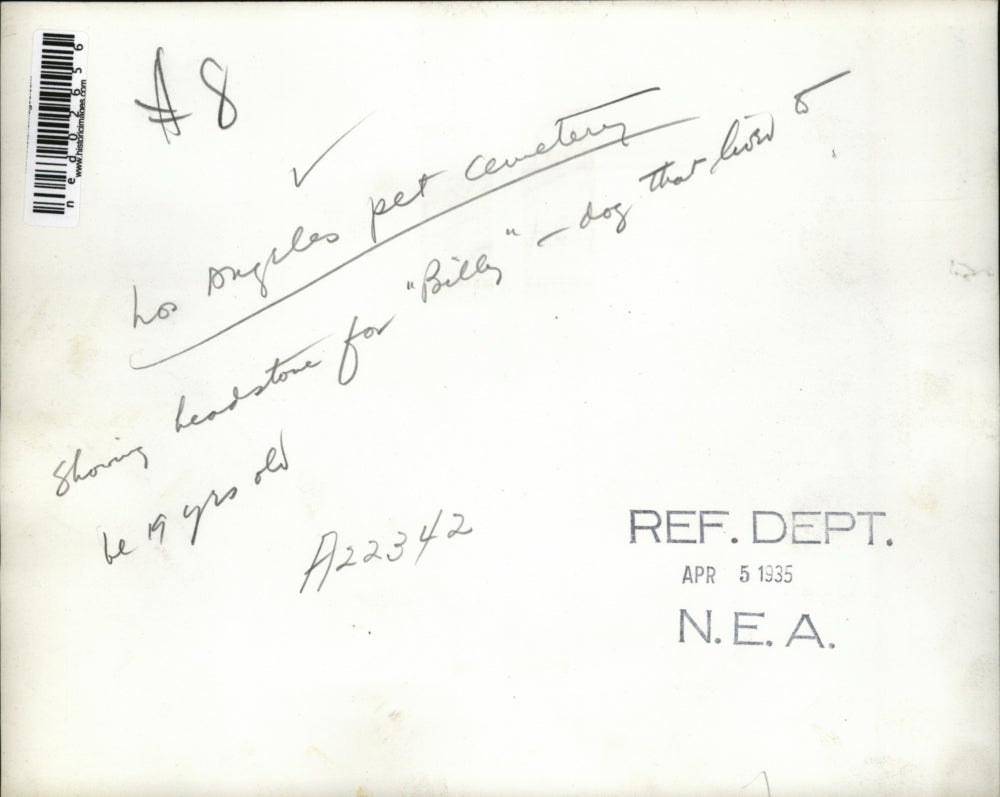 #8
Los Angeles pet cemetery
Showing headstone for "Billy" – dog that lived to
be 19 yrs old
A22342
REF. DEPT.
APR 5 1935
N.E.A.
ned02656
www.historicimages.com